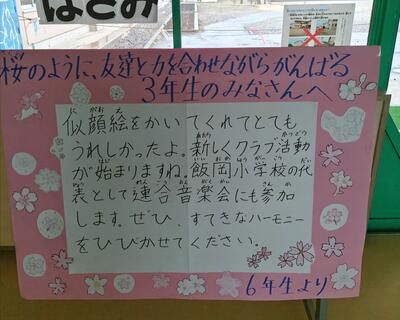 はさみ
桜のように、友達と力を合わせながらがんばる
3年生のみなさんへ
似顔絵をかいてくれてとても
うれしかったよ。新しくクラブ活動
が始まりますね。飯岡小学校の代
表として連合音楽会にも参加
します。ぜひ、すてきなハーモニー
をひびかせてください。
6年生より